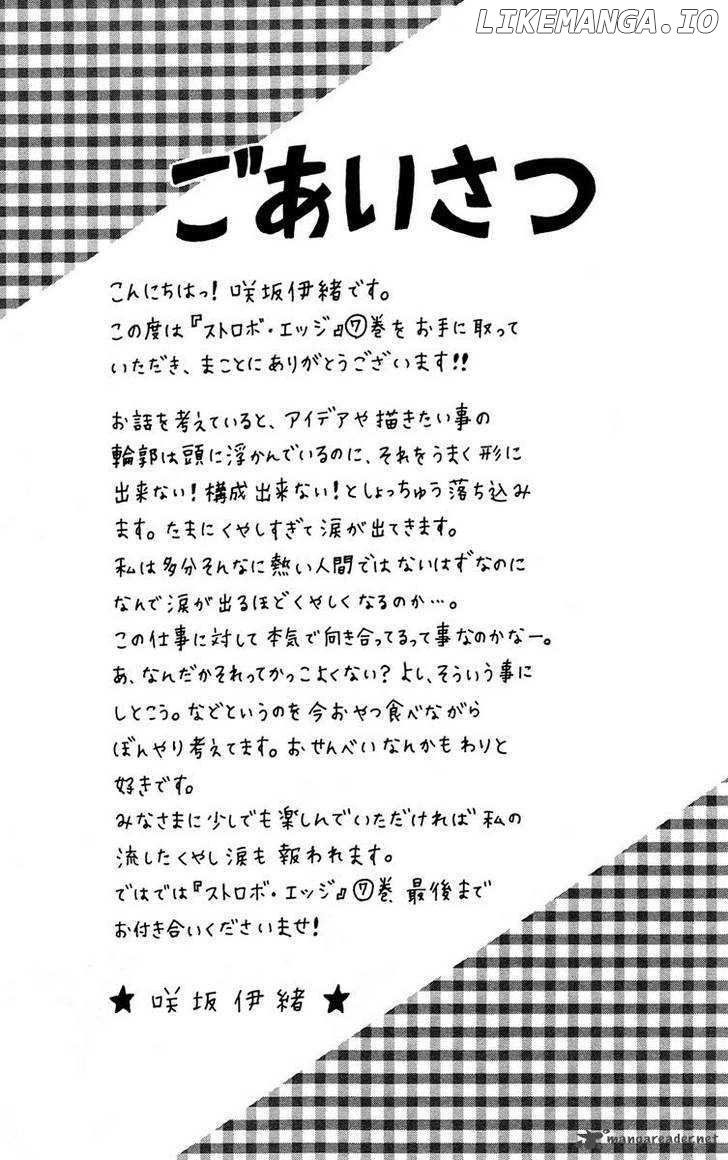 LIKEMANGA.IO
ごあいさつ
こんにちはっ！咲坂伊緒です。
この度は『ストロボ・エッジ』⑦巻をお手に取って
いただき、まことにありがとうございます！！
お話を考えていると、アイデアや描きたい事の
輪郭は頭に浮かんでいるのに、それをうまく形に
出来ない！構成出来ない！としょっちゅう落ち込み
ます。たまにくやしすぎて涙が出てきます。
私は多分そんなに熱い人間ではないはずなのに
なんで涙が出るほどくやしくなるのか…。
この仕事に対して本気で向き合ってるって事なのかなー。
あ、なんだかそれってかっこよくない？よし、そういう事に
しとこう。などというのを今おやつ食べながら
ぼんやり考えてます。おせんべいなんかもわりと
好きです。
みなさまに少しでも楽しんでいただければ私の
流したくやし涙も報われます。
ではでは『ストロボ・エッジ』⑦巻、最後まで
お付き合いくださいませ！
★咲坂伊緒★
mangareader.net